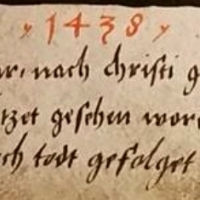 1438
ar, nach Christi g
tzet gesehen wor
ch todt gefolget